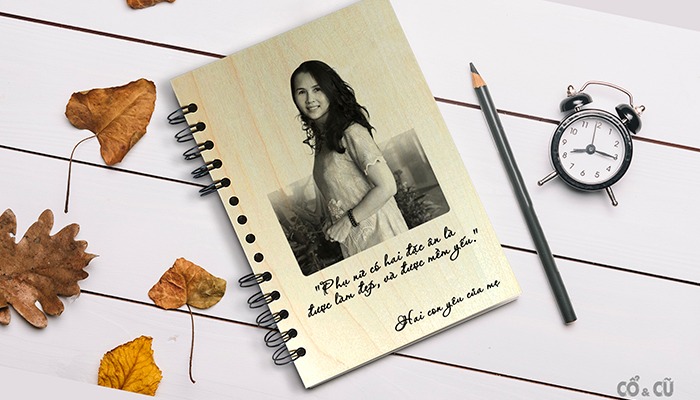 "Phụ nữ có hai đặc ân là
được làm đẹp, và được mềm yếu."
Hai con yêu của mẹ
CỔ & CŨ